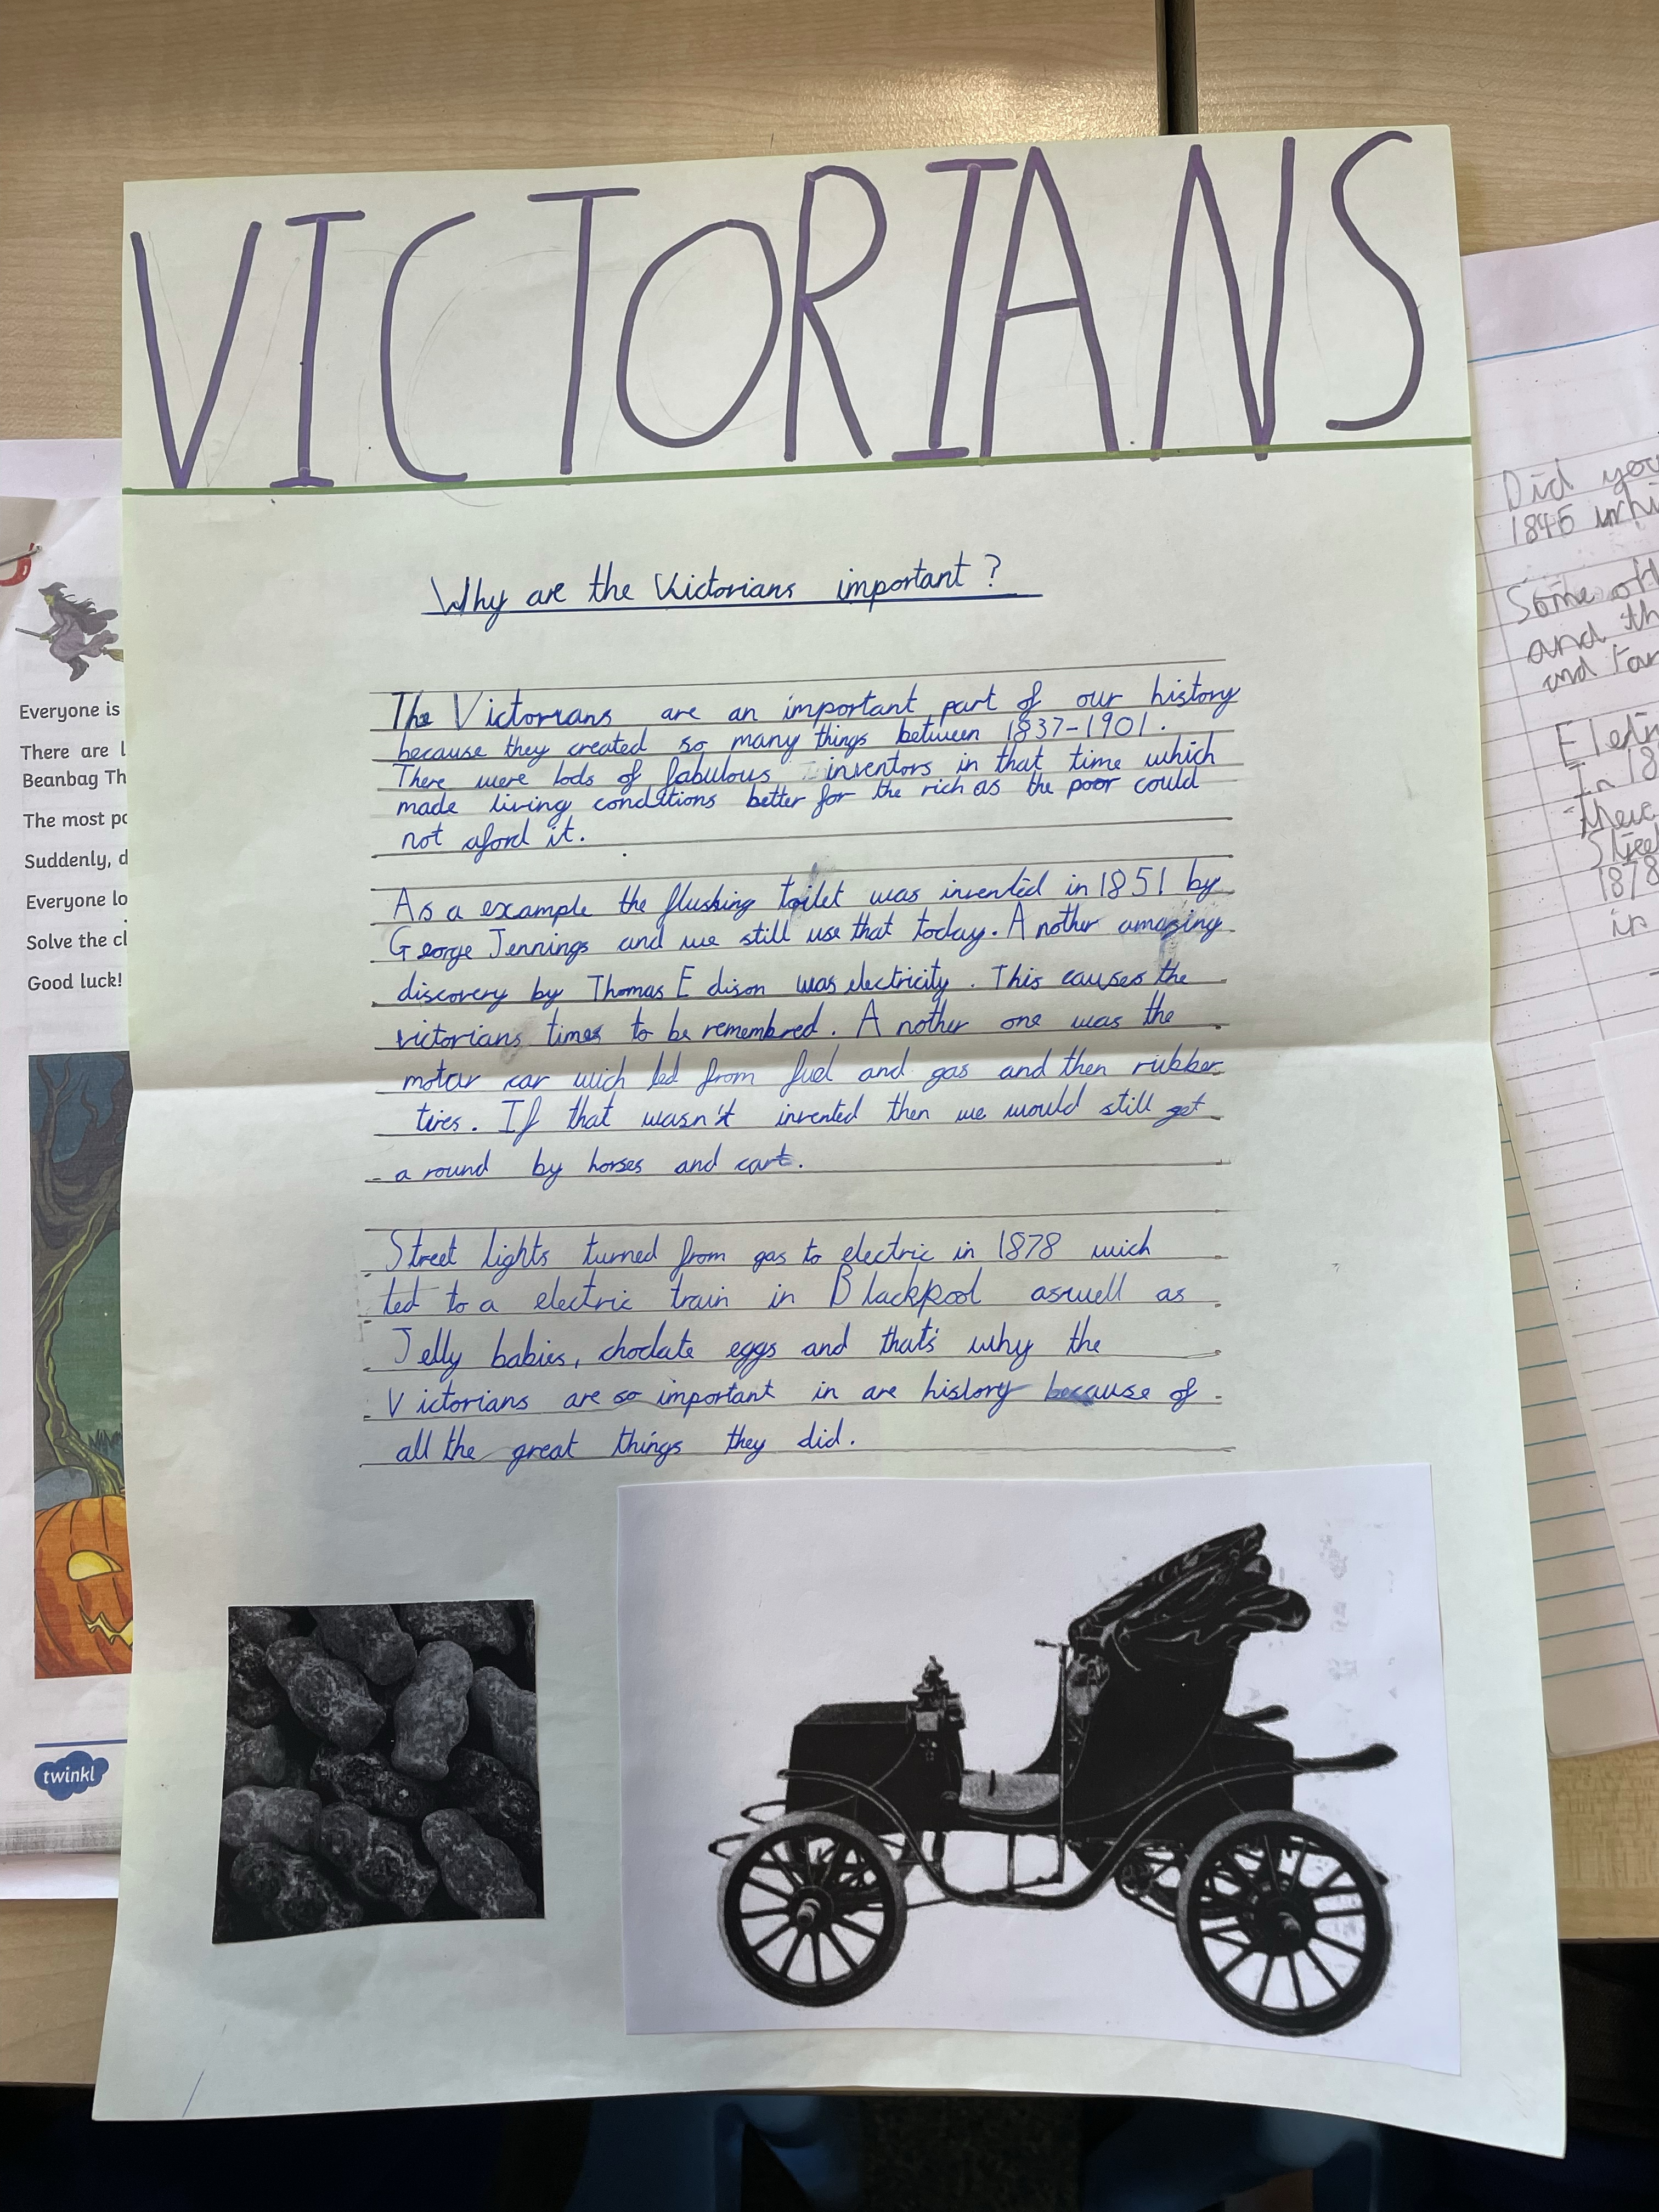 VICTORIANS
Why are the Victorians important?
The Victorians are an important part of our history
because they created so many things between 1837-1901.
There were lods of fabulous inventors in that time which
made living conditions better for the rich as the poor could
not aford it.
As a example the flushing toilet was invented in 1851 by
George Jennings and we still use that today. Another amazing
discovery by Thomas Edison was electricity. This causes the
victorians times to be remembred. Another one was the
motar car wich led from fuel and gas and then rubber
tires. If that wasn't invented then we would still get
a round by horses and cart.
Street lights turned from gas to electric in 1878 wich
led to a electric train in Blackpool aswell as
Jelly babies, choclate eggs and that's why the
Victorians are so important in are history because of
all the great things they did.
Everyone is
There are l
Beanbag Th
The most po
Suddenly, d
Everyone lo
Solve the cl
Good luck!
twinkl
Did you
1845 whi
Some oth
and th
and
In 18
Stree
1878
in